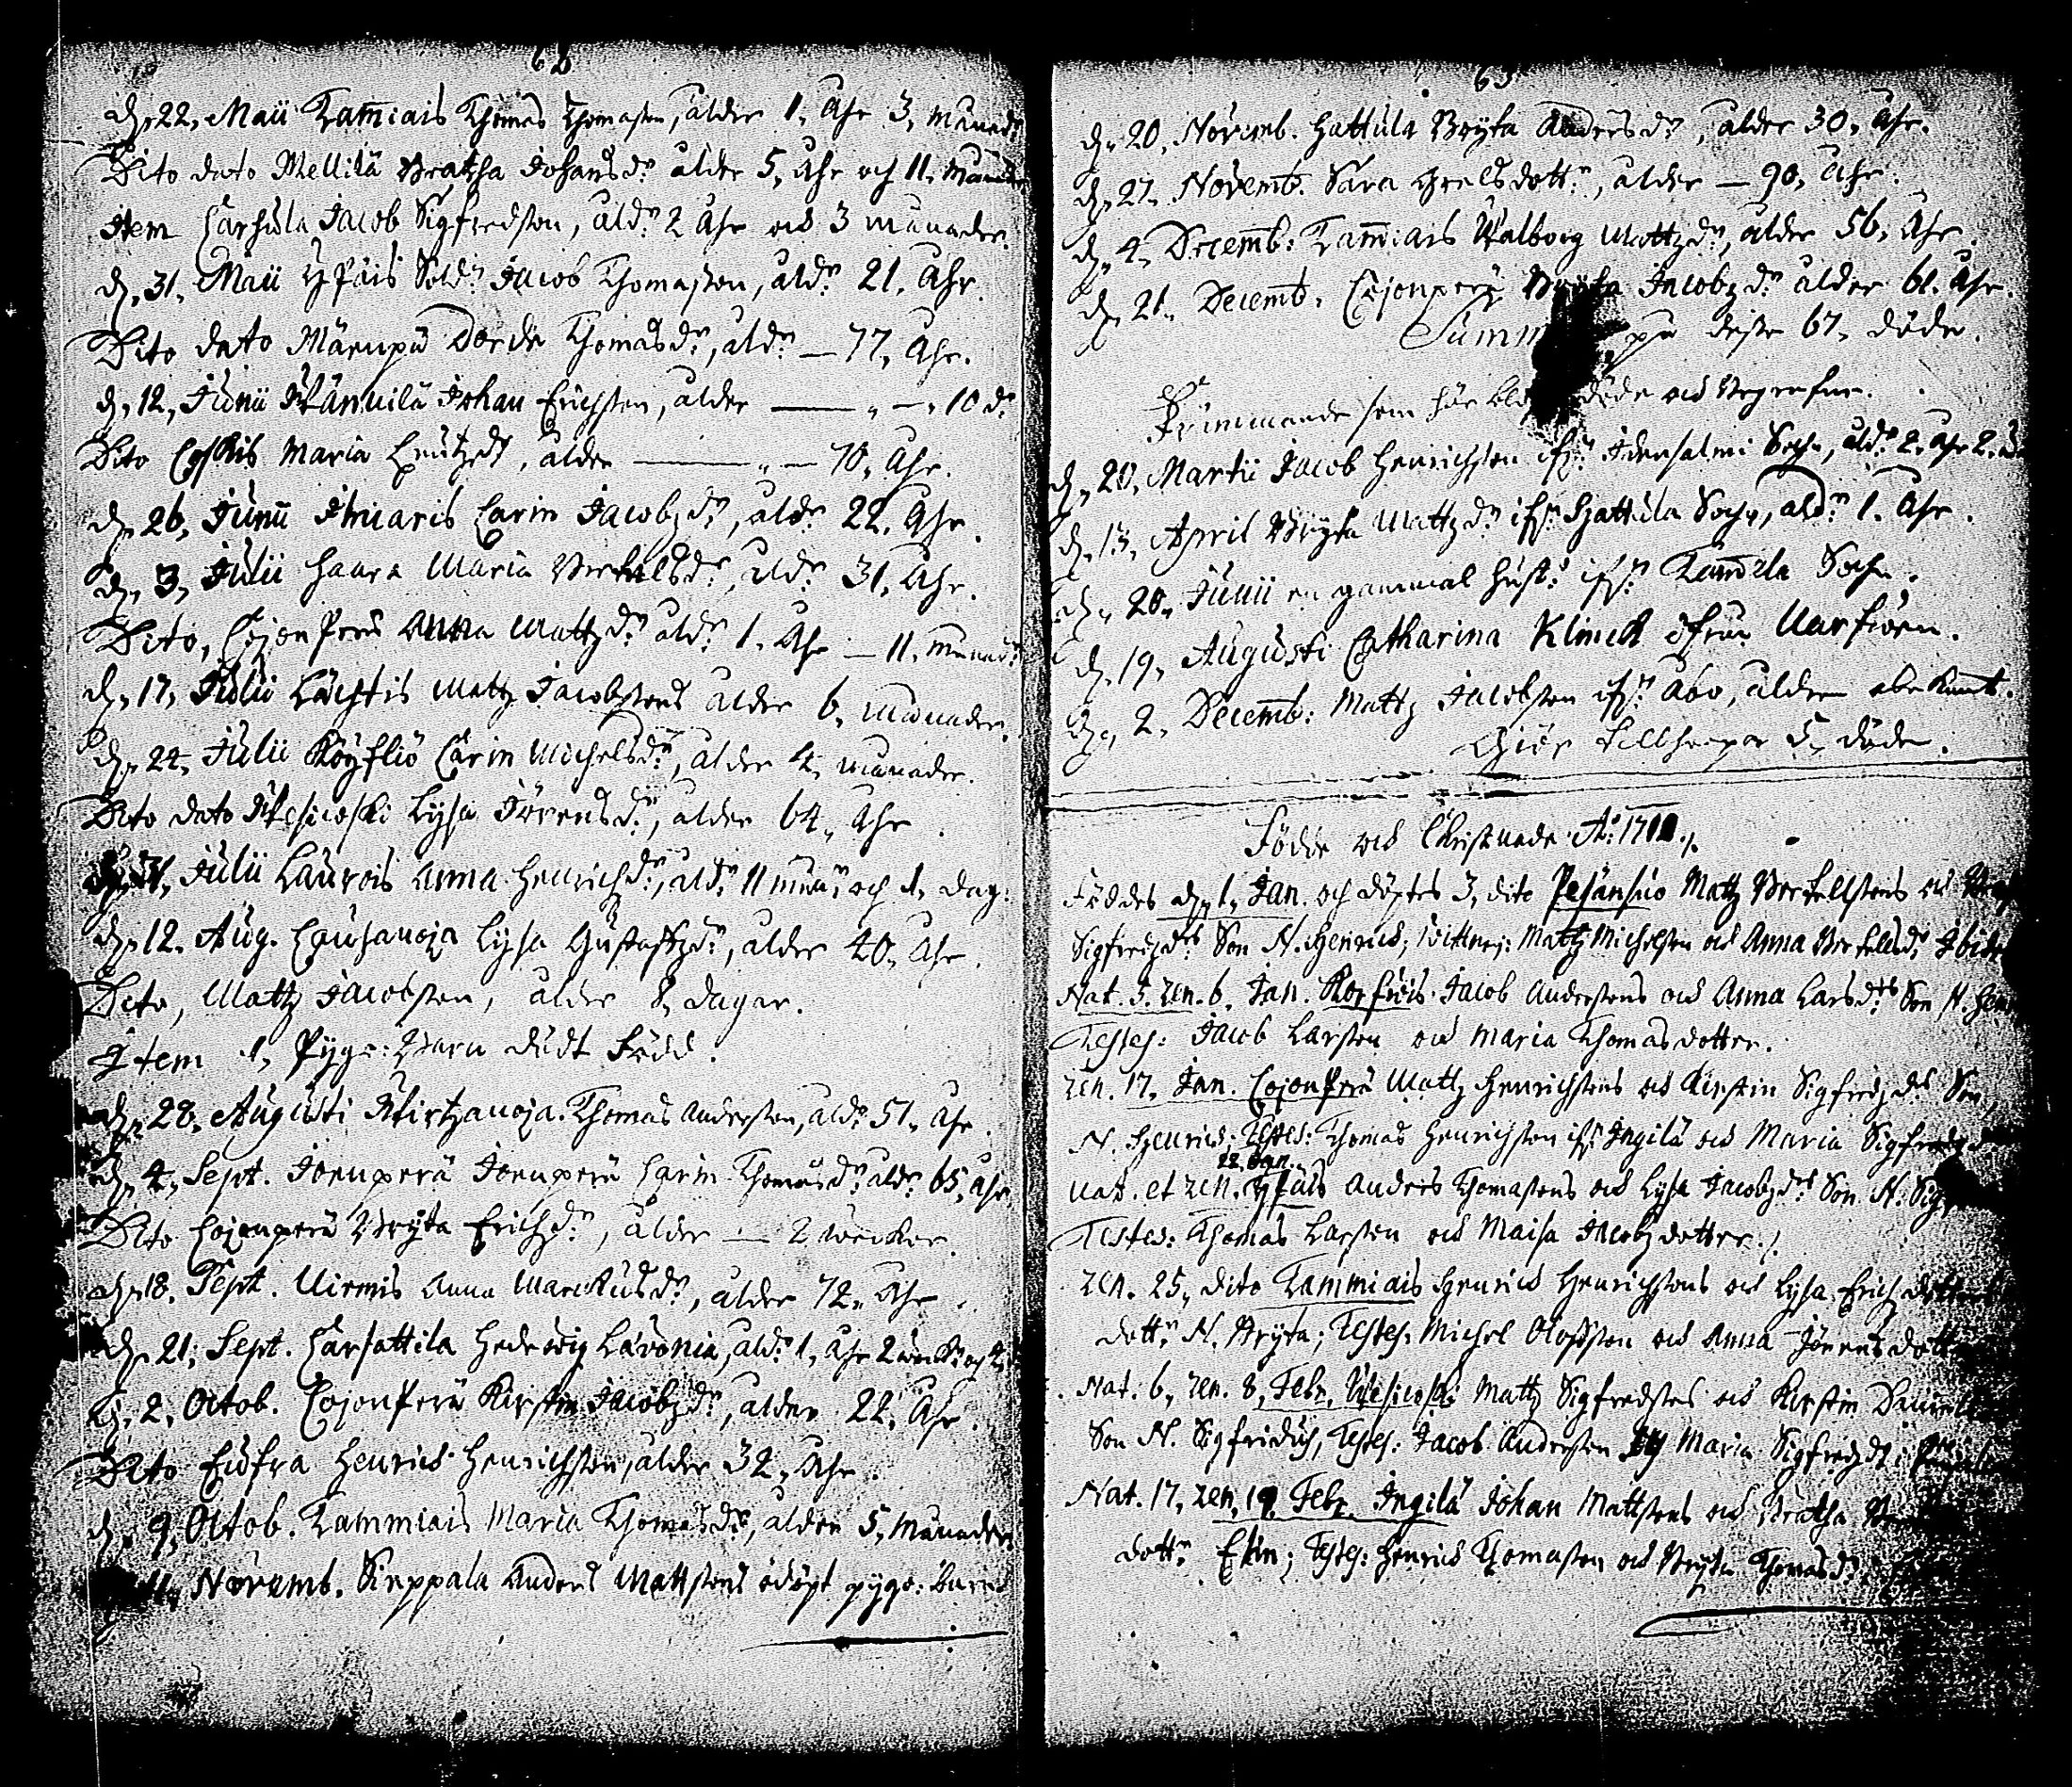 62
d. 22. Maii Tam̅iais Thomas Thomasson, ålder 1. Åhr 3. månad
Dito dato Mellilä Breatha Johansdr ålder 5. Åhr och 11. månader
Item Carhula Jacob Sigfredsson, åldr 2 Åhr och 3 månader.
d. 31. Maii Ypäis Soldr Jacob Thomasson, åldr 21. Åhr.
Dito dato Mäenpä Dorde Thomasdr, åldr — 77. Åhr.
d. 12. Junii Wännilä Johan Erichsson, ålder — " — 10 dr
Dito Maria dr, ålder — " — 70. Åhr.
d. 26. Junii Carin Jacobzdr, åldr 22. Åhr.
d. 3. Julii haara Maria Bertelsdr, åldr 31. Åhr.
Dito, Cojonperä Anna Mattzdr åldr 1. Åhr — 11. månadr
d. 17. Julii Mattz Jacobssons ålder 6. månader.
d. 24. Julii Köyliö Carin Michelsdr, ålder 4. månader.
Dito dato Wesicoski Lysa Jörensdr, ålder 64. Åhr.
31. Julii Laurois Anna Henrichdr, åldr 11 månr och 1. dag.
d. 12. Aug. Cauhanoja Lysa Gustaffzdr, ålder 40. Åhr.
Dito, Mattz Jacobsson, ålder 8. dagar.
Item 1. Pyge: Barn dödt Född.
d. 28. Augusti Wirtzanoja Thomas Andersson, åldr 51. Åhr.
d. 4. Sept. Joenperä Joenperä Carin Thomasdr åldr 65. Åhr
Dito Cojonperä Bryta Erichzdr, ålder — 2 weckor.
d. 18. Sept. Uirmis Anna Marckusdr, ålder 72. Åhr.
d. 21. Sept. Carsattila Hedewig Lavonia, åldr 1. Åhr 2 weckr och 4.
d. 2. Octob. Cojonperä Kirstin Jacobzdr, ålder 22. Åhr.
Dito Eufra Henrich Henrichsson, ålder 32. Åhr.
d. 9. Octob. Tammiais Maria Thomasdr, ålder 5. månader.
11. Novemb. Sieppala Anders Mattssons odöpt pyge: barn
63
d. 20. Novemb. Hattula Bryta Andersdr, ålder 30. Åhr.
d. 27. Novemb. Sara Grelsdottr, ålder — 90. Åhr.
d. 4. Decemb: Tam̅iais Walborg Mattzdr, ålder 56. Åhr.
d. 21. Decemb. Cojonperä Bryta Jacobzdr ålder 61. Åhr.
Summ på desse 67. döde.
Främmande som här döde och Begrafne.
d. 20. Martii Jacob Henrichsson ifrn Idensalmi Sochn, åldr 2. Åhr 2.
d. 13. April Bryta Mattzdr ifrn Hattula Sochn, åldr 1. Åhr.
d. 20. Junii en gammal hustr ifrn Tam̅ela Sochn.
d. 19. Augusti Catharina Klinck ifrån Uarfiöen.
d. 2. Decemb: Mattz Jacobsson ifrn Åbo, ålder obekant.
Giör tillhopa 5. döde.
Födde och Christnade Ao: 1712.
Föddes d. 1. Jan. och döptes 3. dito Pesänsuo Mattz Bertellssons och
Sigfredzdrs Son N. Henrich; Wittnen: Mattz Michelsson och Anna Bertellsdr, Ibid
Nat. 3. ren. 6. Jan. Korfois Jacob Anderssons och Anna Larsdrs Son N.
Testes: Jacob Larsson och Maria Thomasdotter.
ren. 17. Jan. Cojonperä Mattz Henrichssons och Kirstin Sigfredzdrs Son,
N. Henrich; Testes: Thomas Henrichsson ifr Ingilä och Maria Sigfredz
22. Jan.
nat. et ren. Ypäis Anders Thomassons och Lysa Jacobzdrs Son N: Sig
Testes: Thomas Larsson och Maisa Jacobzdotter.
ren. 25. dito Tammiais Henrich Henrichssons och Lysa Erichzdotters
dottr N. Bryta; Testes: Michel Olofsson och Anna Jörensdotter
Nat. 6. ren. 8. Febr. Wesicoski Mattz Sigfredssons och Kirstin
Son N. Sigfridus, Testes: Jacob Andersson Maria Sigfredzdr
Nat. 17. ren. 19. Febr. Ingilä Johan Mattssons och Breatha
dottr Elin; Testes: Henrich Thomasson och Bryta Thomasdr.